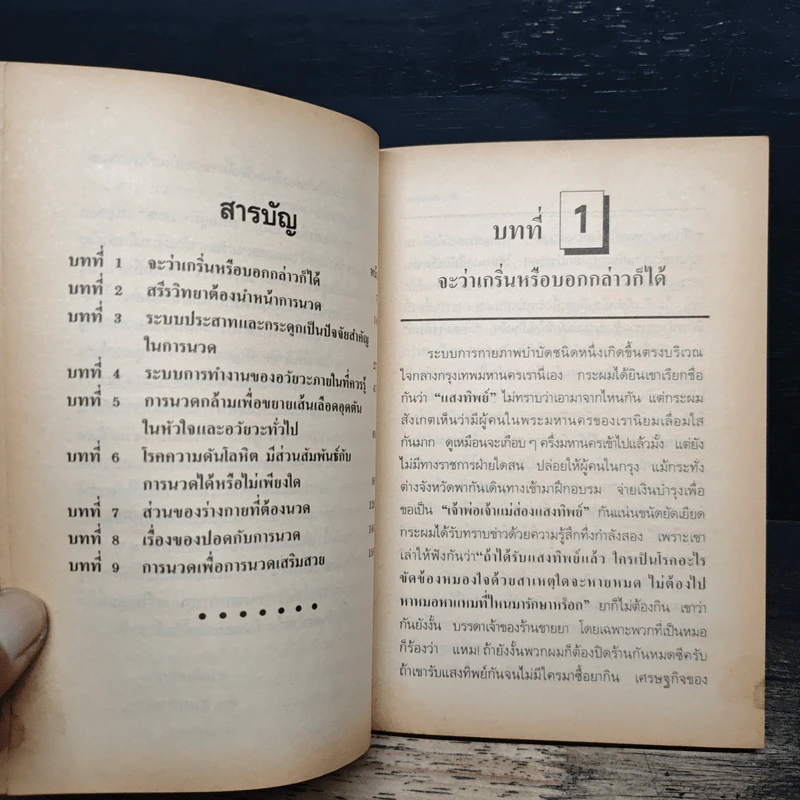 สารบัญ
บทที่ 1 จะว่าเกริ่นหรือบอกกล่าวก็ได้
บทที่ 2 สรีรวิทยาต้องนำหน้าการนวด
บทที่ 3 ระบบประสาทและกระดูกเป็นปัจจัยสำคัญ
ในการนวด
บทที่ 4 ระบบการทำงานของอวัยวะภายในที่ควรรู้
บทที่ 5 การนวดกล้ามเพื่อขยายเส้นเลือดอุดตัน
ในหัวใจและอวัยวะทั่วไป
บทที่ 6 โรคความดันโลหิต มีส่วนสัมพันธ์กับ
การนวดได้หรือไม่เพียงใด
บทที่ 7 ส่วนของร่างกายที่ต้องนวด
บทที่ 8 เรื่องของปอดกับการนวด
บทที่ 9 การนวดเพื่อการนวดเสริมสวย
บทที่ 1
จะว่าเกริ่นหรือบอกกล่าวก็ได้
ระบบการกายภาพบำบัดชนิดหนึ่งเกิดขึ้นตรงบริเวณ
ใจกลางกรุงเทพมหานครเรานี่เอง กระผมได้ยินเขาเรียกชื่อ
กันว่า “แสงทิพย์” ไม่ทราบว่าเอามาจากไหนกัน แต่กระผม
สังเกตเห็นว่ามีผู้คนในพระมหานครของเรานิยมเลื่อมใส
กันมาก ดูเหมือนจะเกือบๆ ครึ่งมหานครเข้าไปแล้วมั้ง แต่ยัง
ไม่มีทางราชการฝ่ายใดสน ปล่อยให้ผู้คนในกรุง แม้กระทั่ง
ต่างจังหวัดพากันเดินทางเข้ามาฝึกอบรม จ่ายเงินบำรุงเพื่อ
ขอเป็น “เจ้าพ่อเจ้าแม่ส่องแสงทิพย์” กันแน่นขนัดยัดเยียด
กระผมได้รับทราบข่าวด้วยความรู้สึกทึ่งกำลังสอง เพราะเขา
เล่าให้ฟังกันว่า“ถ้าได้รับแสงทิพย์แล้ว ใครเป็นโรคอะไร
ขัดข้องหมองใจด้วยสาเหตุใดจะหายหมด ไม่ต้องไป
หาหมอหาแหมที่ไหนมารักษาหร็อก” ยาก็ไม่ต้องกิน เขาว่า
กันยังงั้น บรรดาเจ้าของร้านขายยา โดยเฉพาะพวกที่เป็นหมอ
ก็ร้องว่า แหม! ถ้ายังงั้นพวกผมก็ต้องปิดร้านกันหมดซีครับ
ถ้าเขารับแสงทิพย์กันจนไม่มีใครมาซื้อยากิน เศรษฐกิจของ